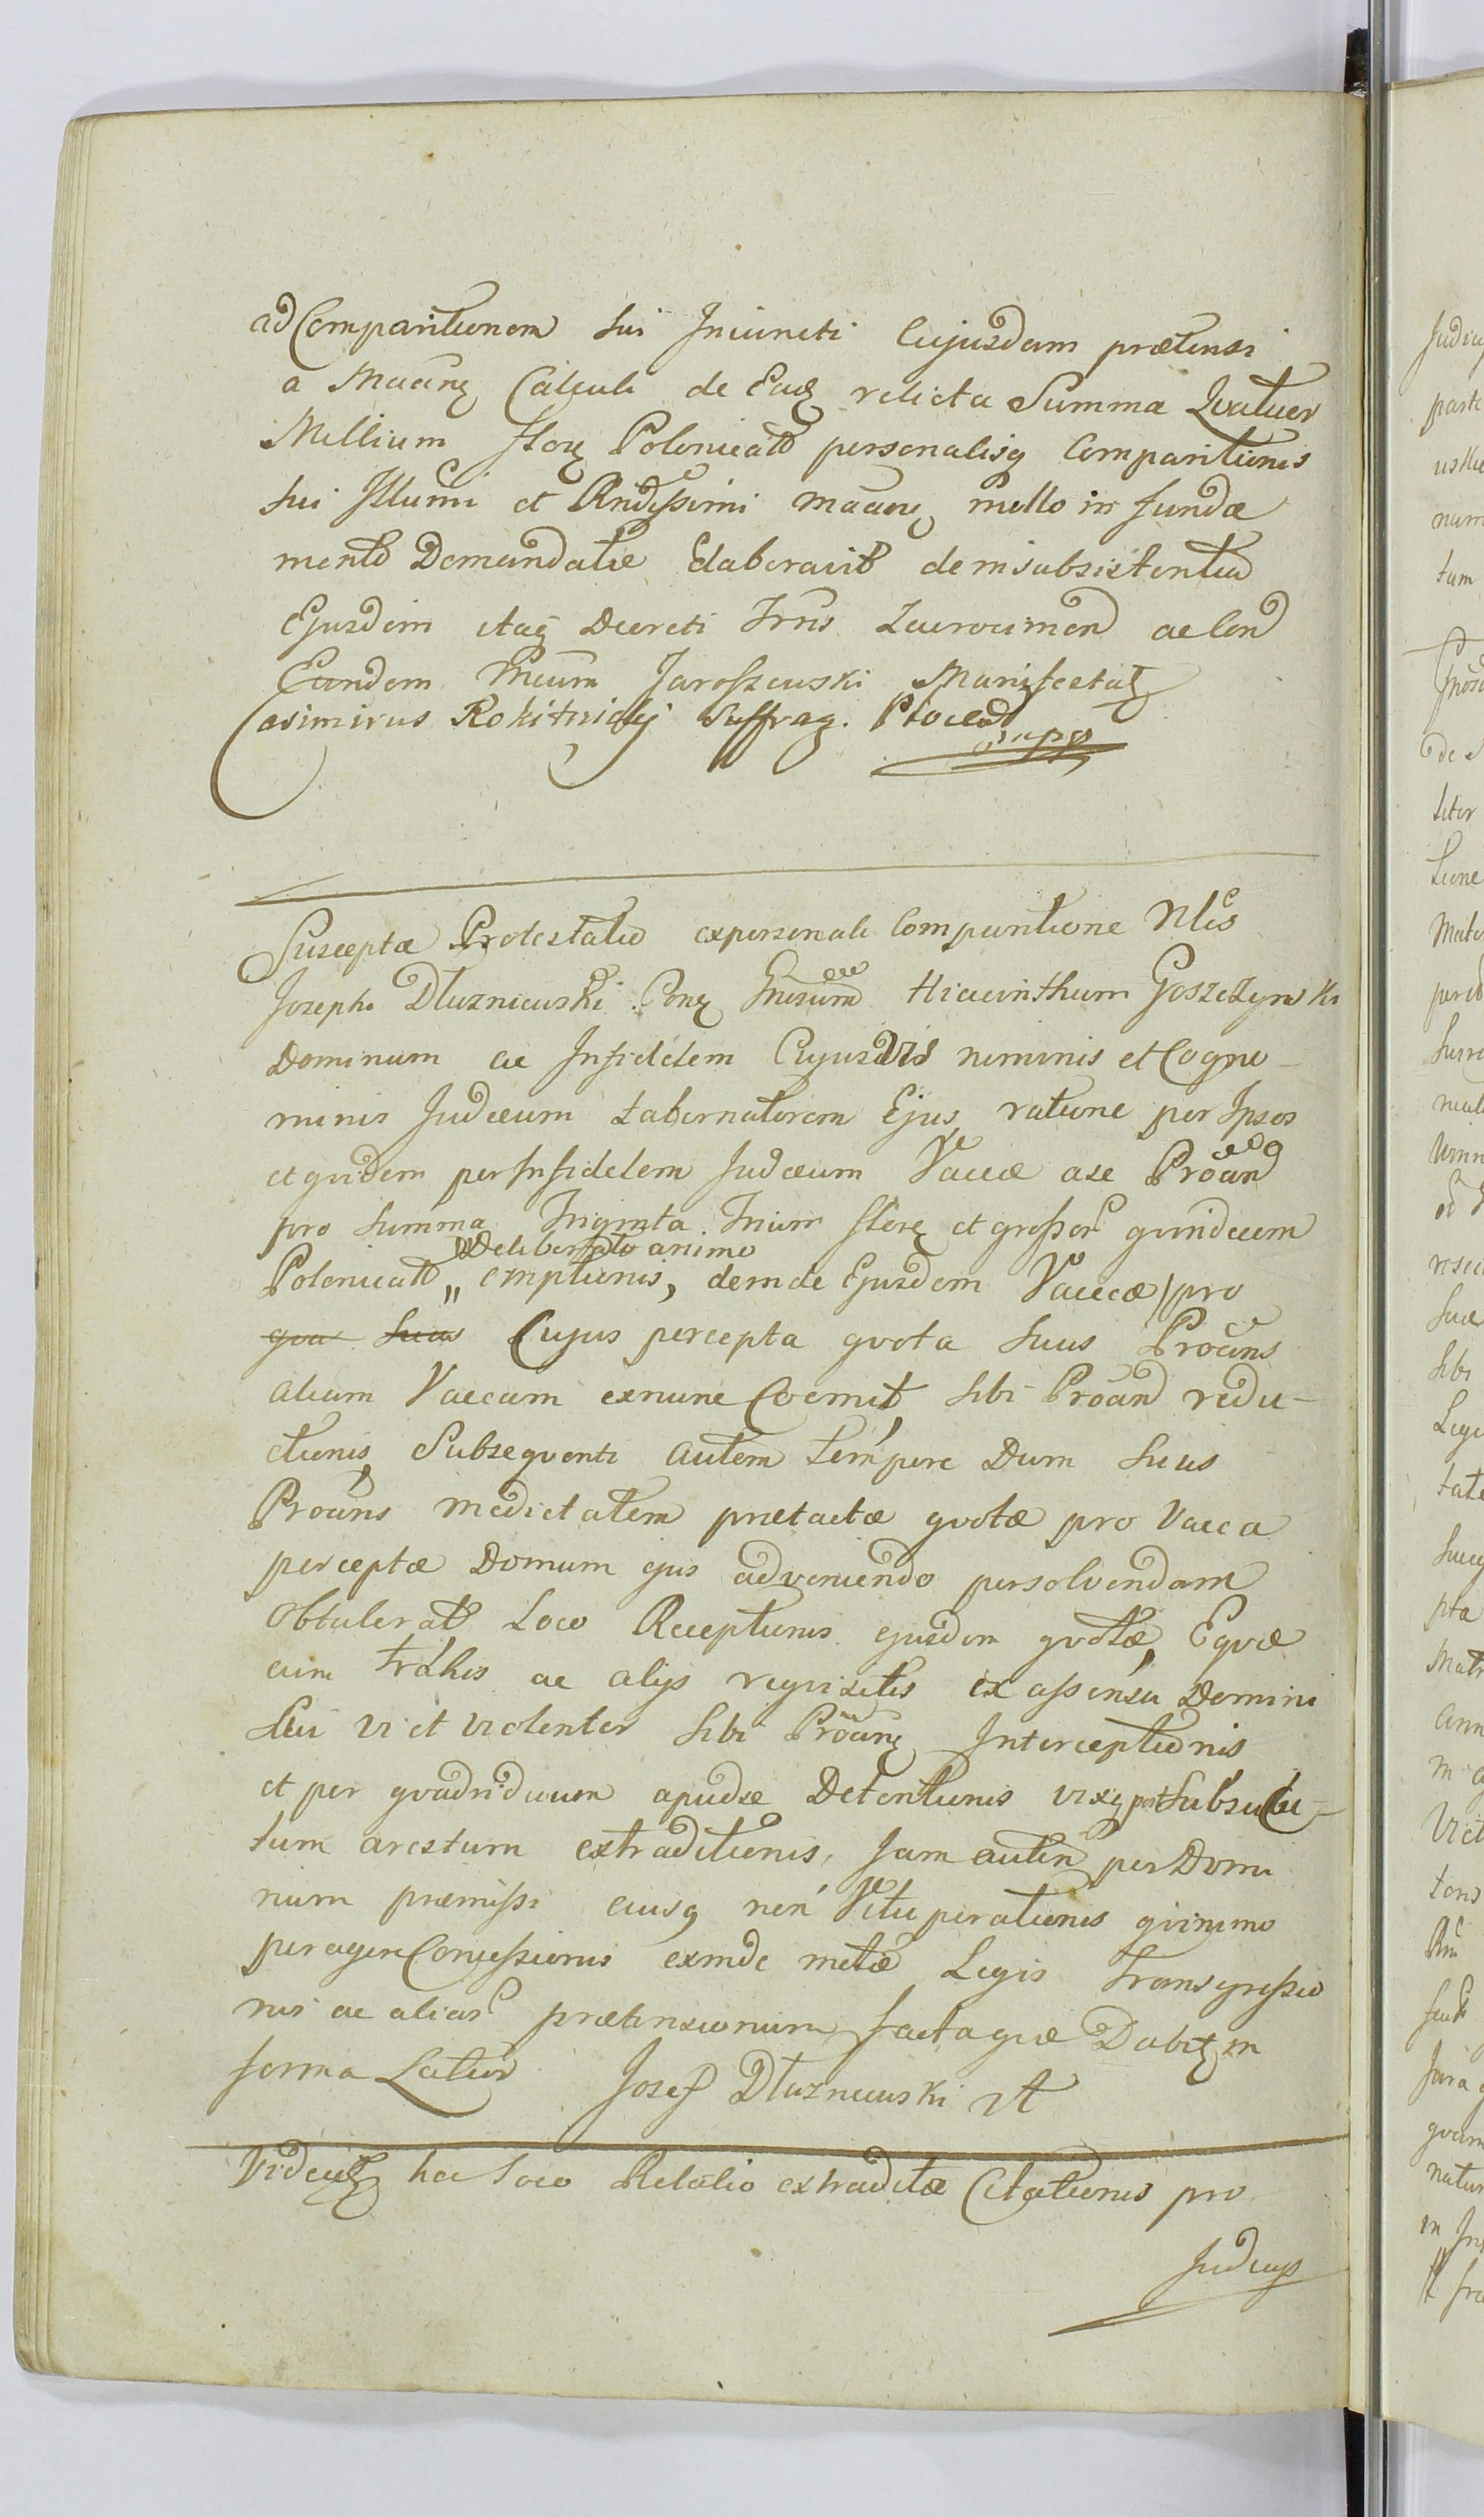 ad Comparitionem sui Iniuncti Cujusdam prætensi
a Maãnẽ Calculi de Eadẽ relicta Summa Qvatuor
Millium flore Polonicalt personalisq Comparitionis
sui Illumi et Rndissimi mããnẽ nullo in funda
mento Demandatæ Elaboravit de insubsistentia
Ejusdem itaq Decreti Trns ac Con
Eundem Jaroszewski Manifestat
Casimirus Rokitnicki Suffrag. Płocen
mppa
Suscepta Protestatio ex personali Comparitione Nlis
Josephi Dłuzniewski Con Gnosum Hiacinthum Goszczynski
Dominum ac Infidelem Cujusvis nominis et Cogno-
minis Judæum tabernatorem Ejus, ratione per Ipsos
et qvidem per Infidelem Judæum Vaccæ a se Proãn
pro summa Triginta Trium flore et grossor qvindecem
Deliberato animo
Polonicalt " emptionis, deinde Ejusdem Vaccæ / pro
qva suas Cujus percepta qvota suus Proãns
aliam Vaccam exnunc Coemit, sibi Proãn redu-
ctionis, Subseqventi autem tempore Dum suus
Proãns medietatem prætactæ qvotæ pro Vacca
perceptæ Domum ejus adveniendo persolvendam
obtulerat Loco Receptionis ejusdem qvotæ, Eqvæ
cum trahis ac alijs reqvisitis ex assensu Domini
sui vi et violenter sibi Proãnẽ Interceptionis
et per qvadriduum apud se Detentionis vixq post subsecu-
tum arestum extraditionis, Jam autem per Domi
num præmissi ejusq non Vituperationis qvinimo
peragere Concessionis exinde metæ Legis Transgressio
nis ac aliar prætensionum factaqve Dabit in
forma Latior Josef Dłuzniewski
Videat hoc loco Relatio extraditæ Citationis pro
Judicijs